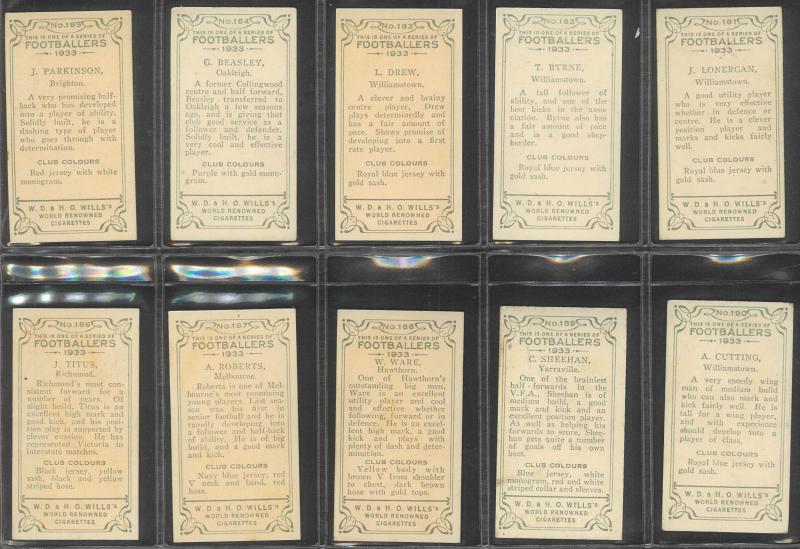 No.185
THIS IS ONE OF A SERIES OF
FOOTBALLERS
1933
J. PARKINSON,
Brighton.
A very promising half-
back who has developed
into a player of ability.
Solidly built, he is a
dashing type of player
who goes through with
determination.
CLUB COLOURS
Red jersey with white
monogram.
W. D. & H. O. WILLS'S
WORLD RENOWNED
CIGARETTES
No.184
THIS IS ONE OF A SERIES OF
FOOTBALLERS
1933
G. BEASLEY,
Oakleigh.
A former Collingwood
centre and half forward,
Beasley transferred to
Oakleigh a few seasons
ago, and is giving that
club good service as a
follower and defender.
Solidly built, he is a
very cool and effective
player.
CLUB COLOURS
Purple with gold mono-
gram.
W. D. & H. O. WILLS'S
WORLD RENOWNED
CIGARETTES
No.183
THIS IS ONE OF A SERIES OF
FOOTBALLERS
1933
L. DREW,
Williamstown.
A clever and brainy
centre player, Drew
plays determinedly and
has a fair amount of
pace. Shows promise of
developing into a first
rate player.
CLUB COLOURS
Royal blue jersey with
gold sash.
W. D. & H. O. WILLS'S
WORLD RENOWNED
CIGARETTES
No.182
THIS IS ONE OF A SERIES OF
FOOTBALLERS
1933
T. BYRNE,
Williamstown.
A tall follower of
ability, and one of the
best kicks in the asso-
ciation. Byrne also has
a fair amount of pace
and is a good shep-
herder.
CLUB COLOURS
Royal blue jersey with
gold sash.
W. D. & H. O. WILLS'S
WORLD RENOWNED
CIGARETTES
No.181
THIS IS ONE OF A SERIES OF
FOOTBALLERS
1933
J. LONERGAN,
Williamstown.
A good utility player
who is very effective
whether in defence or
centre. He is a clever
position player and
marks and kicks fairly
well.
CLUB COLOURS
Royal blue jersey with
gold sash.
W. D. & H. O. WILLS'S
WORLD RENOWNED
CIGARETTES
No.186
THIS IS ONE OF A SERIES OF
FOOTBALLERS
1933
J. TITUS,
Richmond.
Richmond's most con-
sistent forward for a
number of years. Of
slight build, Titus is an
excellent high mark and
good kick, and his posi-
tion play is supported by
clever evasion. He has
represented Victoria in
interstate matches.
CLUB COLOURS
Black jersey, yellow
sash, black and yellow
striped hose.
W. D. & H. O. WILLS'S
WORLD RENOWNED
CIGARETTES
No.187
THIS IS ONE OF A SERIES OF
FOOTBALLERS
1933
A. ROBERTS,
Melbourne.
Roberts is one of Mel-
bourne's most promising
young players. Last sea-
son was his first in
senior football and he is
rapidly developing into
a follower and half-back
of ability. He is of big
build, and a good mark
and kick.
CLUB COLOURS
Navy blue jersey, red
V neck and band, red
hose.
W. D. & H. O. WILLS'S
WORLD RENOWNED
CIGARETTES
No.188
THIS IS ONE OF A SERIES OF
FOOTBALLERS
1933
W. WARE,
Hawthorn.
One of Hawthorn's
outstanding big men,
Ware is an excellent
utility player and cool
and effective whether
following, forward or in
defence. He is an excel-
lent high mark, a good
kick and plays with
plenty of dash and deter-
mination.
CLUB COLOURS
Yellow body with
brown V from shoulder
to chest, dark brown
hose with gold tops.
W. D. & H. O. WILLS'S
WORLD RENOWNED
CIGARETTES
No.189
THIS IS ONE OF A SERIES OF
FOOTBALLERS
1933
C. SHEEHAN,
Yarraville.
One of the brainiest
half-forwards in the
V.F.A., Sheehan is of
medium build, a good
mark and kick and an
excellent position player.
As well as helping his
forwards to score, Shee-
han gets quite a number
of goals off his own
boot.
CLUB COLOURS
Blue jersey, white
monogram, red and white
striped collar and sleeves.
W. D. & H. O. WILLS'S
WORLD RENOWNED
CIGARETTES
No.190
THIS IS ONE OF A SERIES OF
FOOTBALLERS
1933
A. CUTTING,
Williamstown.
A very speedy wing
man of medium build
who can also mark and
kick fairly well. He is
tall for a wing player,
and with experience
should develop into a
player of class.
CLUB COLOURS
Royal blue jersey with
gold sash.
W. D. & H. O. WILLS'S
WORLD RENOWNED
CIGARETTES